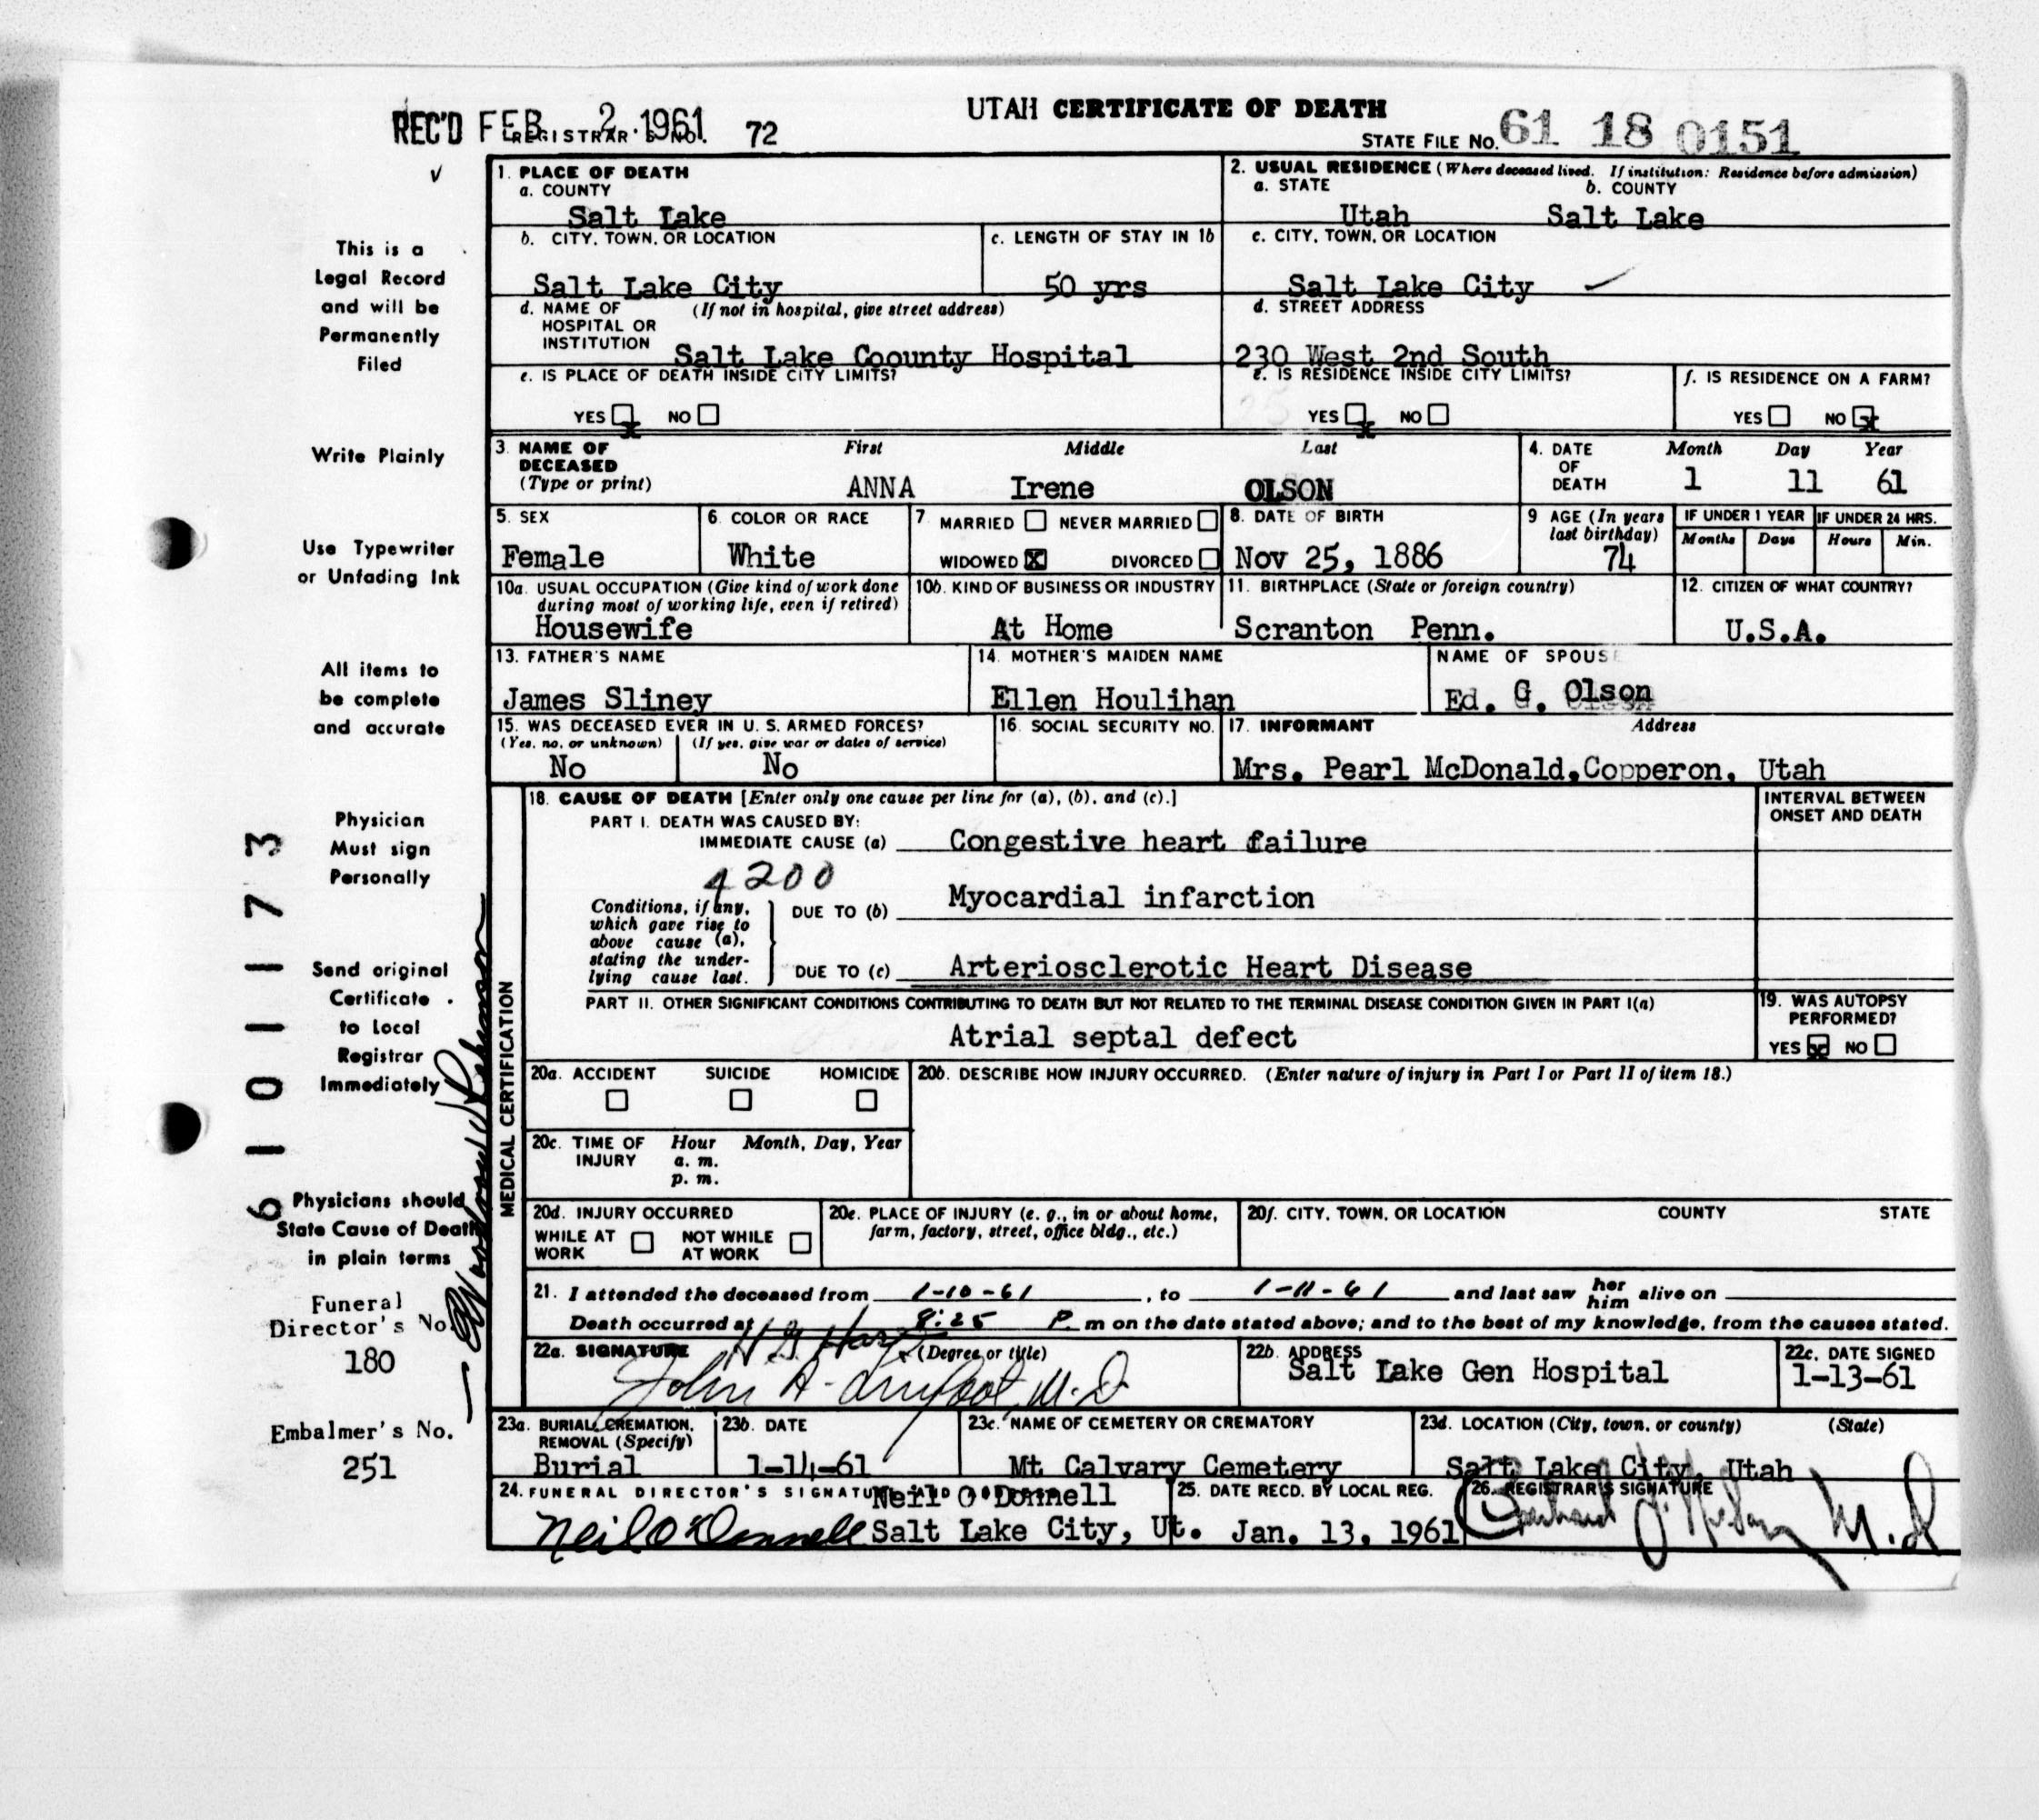 UTAH CERTIFICATE OF DEATH
REC'D FEB 2 1961 REGISTRAR'S NO. 72
STATE FILE NO. 61 18 0151
This is a Legal Record and will be Permanently Filed
Write Plainly
Use Typewriter or Unfading Ink
All items to be complete and accurate
Physician Must sign Personally
Send original Certificate to Local Registrar Immediately
Physicians should State Cause of Death in plain terms
Funeral Director's No.
180
Embalmer's No.
251
61011173
1. PLACE OF DEATH
a. COUNTY
Salt Lake
2. USUAL RESIDENCE (Where deceased lived. If institution: Residence before admission)
a. STATE b. COUNTY
Utah Salt Lake
b. CITY, TOWN, OR LOCATION
Salt Lake City
c. LENGTH OF STAY IN 1b
50 yrs
c. CITY, TOWN, OR LOCATION
Salt Lake City
d. NAME OF HOSPITAL OR INSTITUTION (If not in hospital, give street address)
Salt Lake Coounty Hospital
d. STREET ADDRESS
230 West 2nd South
e. IS PLACE OF DEATH INSIDE CITY LIMITS?
YES x NO
e. IS RESIDENCE INSIDE CITY LIMITS?
YES x NO
f. IS RESIDENCE ON A FARM?
YES NO x
3. NAME OF DECEASED (Type or print)
First Middle Last
ANNA Irene OLSON
4. DATE OF DEATH
Month Day Year
1 11 61
5. SEX
Female
6. COLOR OR RACE
White
7. MARRIED NEVER MARRIED
WIDOWED X DIVORCED
8. DATE OF BIRTH
Nov 25, 1886
9 AGE (In years last birthday)
74
IF UNDER 1 YEAR IF UNDER 24 HRS.
Months Days Hours Min.
10a. USUAL OCCUPATION (Give kind of work done during most of working life, even if retired)
Housewife
10b. KIND OF BUSINESS OR INDUSTRY
At Home
11. BIRTHPLACE (State or foreign country)
Scranton Penn.
12. CITIZEN OF WHAT COUNTRY?
U.S.A.
13. FATHER'S NAME
James Sliney
14. MOTHER'S MAIDEN NAME
Ellen Houlihan
NAME OF SPOUSE
Ed. G. Olson
15. WAS DECEASED EVER IN U. S. ARMED FORCES?
(Yes, no, or unknown) (If yes, give war or dates of service)
No No
16. SOCIAL SECURITY NO.
17. INFORMANT Address
Mrs. Pearl McDonald, Copperon, Utah
MEDICAL CERTIFICATION
18. CAUSE OF DEATH [Enter only one cause per line for (a), (b), and (c).]
INTERVAL BETWEEN ONSET AND DEATH
PART I. DEATH WAS CAUSED BY:
IMMEDIATE CAUSE (a) Congestive heart failure
4200
Conditions, if any, which gave rise to above cause (a), stating the underlying cause last.
DUE TO (b) Myocardial infarction
DUE TO (c) Arteriosclerotic Heart Disease
PART II. OTHER SIGNIFICANT CONDITIONS CONTRIBUTING TO DEATH BUT NOT RELATED TO THE TERMINAL DISEASE CONDITION GIVEN IN PART I(a)
Atrial septal defect
19. WAS AUTOPSY PERFORMED?
YES x NO
20a. ACCIDENT SUICIDE HOMICIDE
20b. DESCRIBE HOW INJURY OCCURRED. (Enter nature of injury in Part I or Part II of item 18.)
20c. TIME OF INJURY Hour Month, Day, Year
a. m.
p. m.
20d. INJURY OCCURRED
WHILE AT WORK NOT WHILE AT WORK
20e. PLACE OF INJURY (e. g., in or about home, farm, factory, street, office bldg., etc.)
20f. CITY, TOWN, OR LOCATION COUNTY STATE
21. I attended the deceased from 1-10-61, to 1-11-61 and last saw her him alive on
Death occurred at 8:25 P. m on the date stated above; and to the best of my knowledge, from the causes stated.
22a. SIGNATURE (Degree or title)
John M.D.
22b. ADDRESS
Salt Lake Gen Hospital
22c. DATE SIGNED
1-13-61
23a. BURIAL, CREMATION, REMOVAL (Specify)
Burial
23b. DATE
1-14-61
23c. NAME OF CEMETERY OR CREMATORY
Mt Calvary Cemetery
23d. LOCATION (City, town, or county) (State)
Salt Lake City, Utah
24. FUNERAL DIRECTOR'S SIGNATURE AND ADDRESS
Neil O'Donnell
Neil O'Donnell Salt Lake City, Ut.
25. DATE RECD. BY LOCAL REG.
Jan. 13, 1961
26. REGISTRAR'S SIGNATURE
M.D